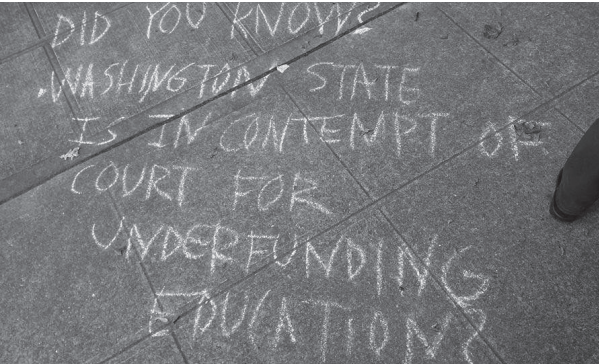 DID YOU KNOW?
WASHINGTON STATE
IS IN CONTEMPT OF
COURT FOR
UNDERFUNDING
EDUCATION?